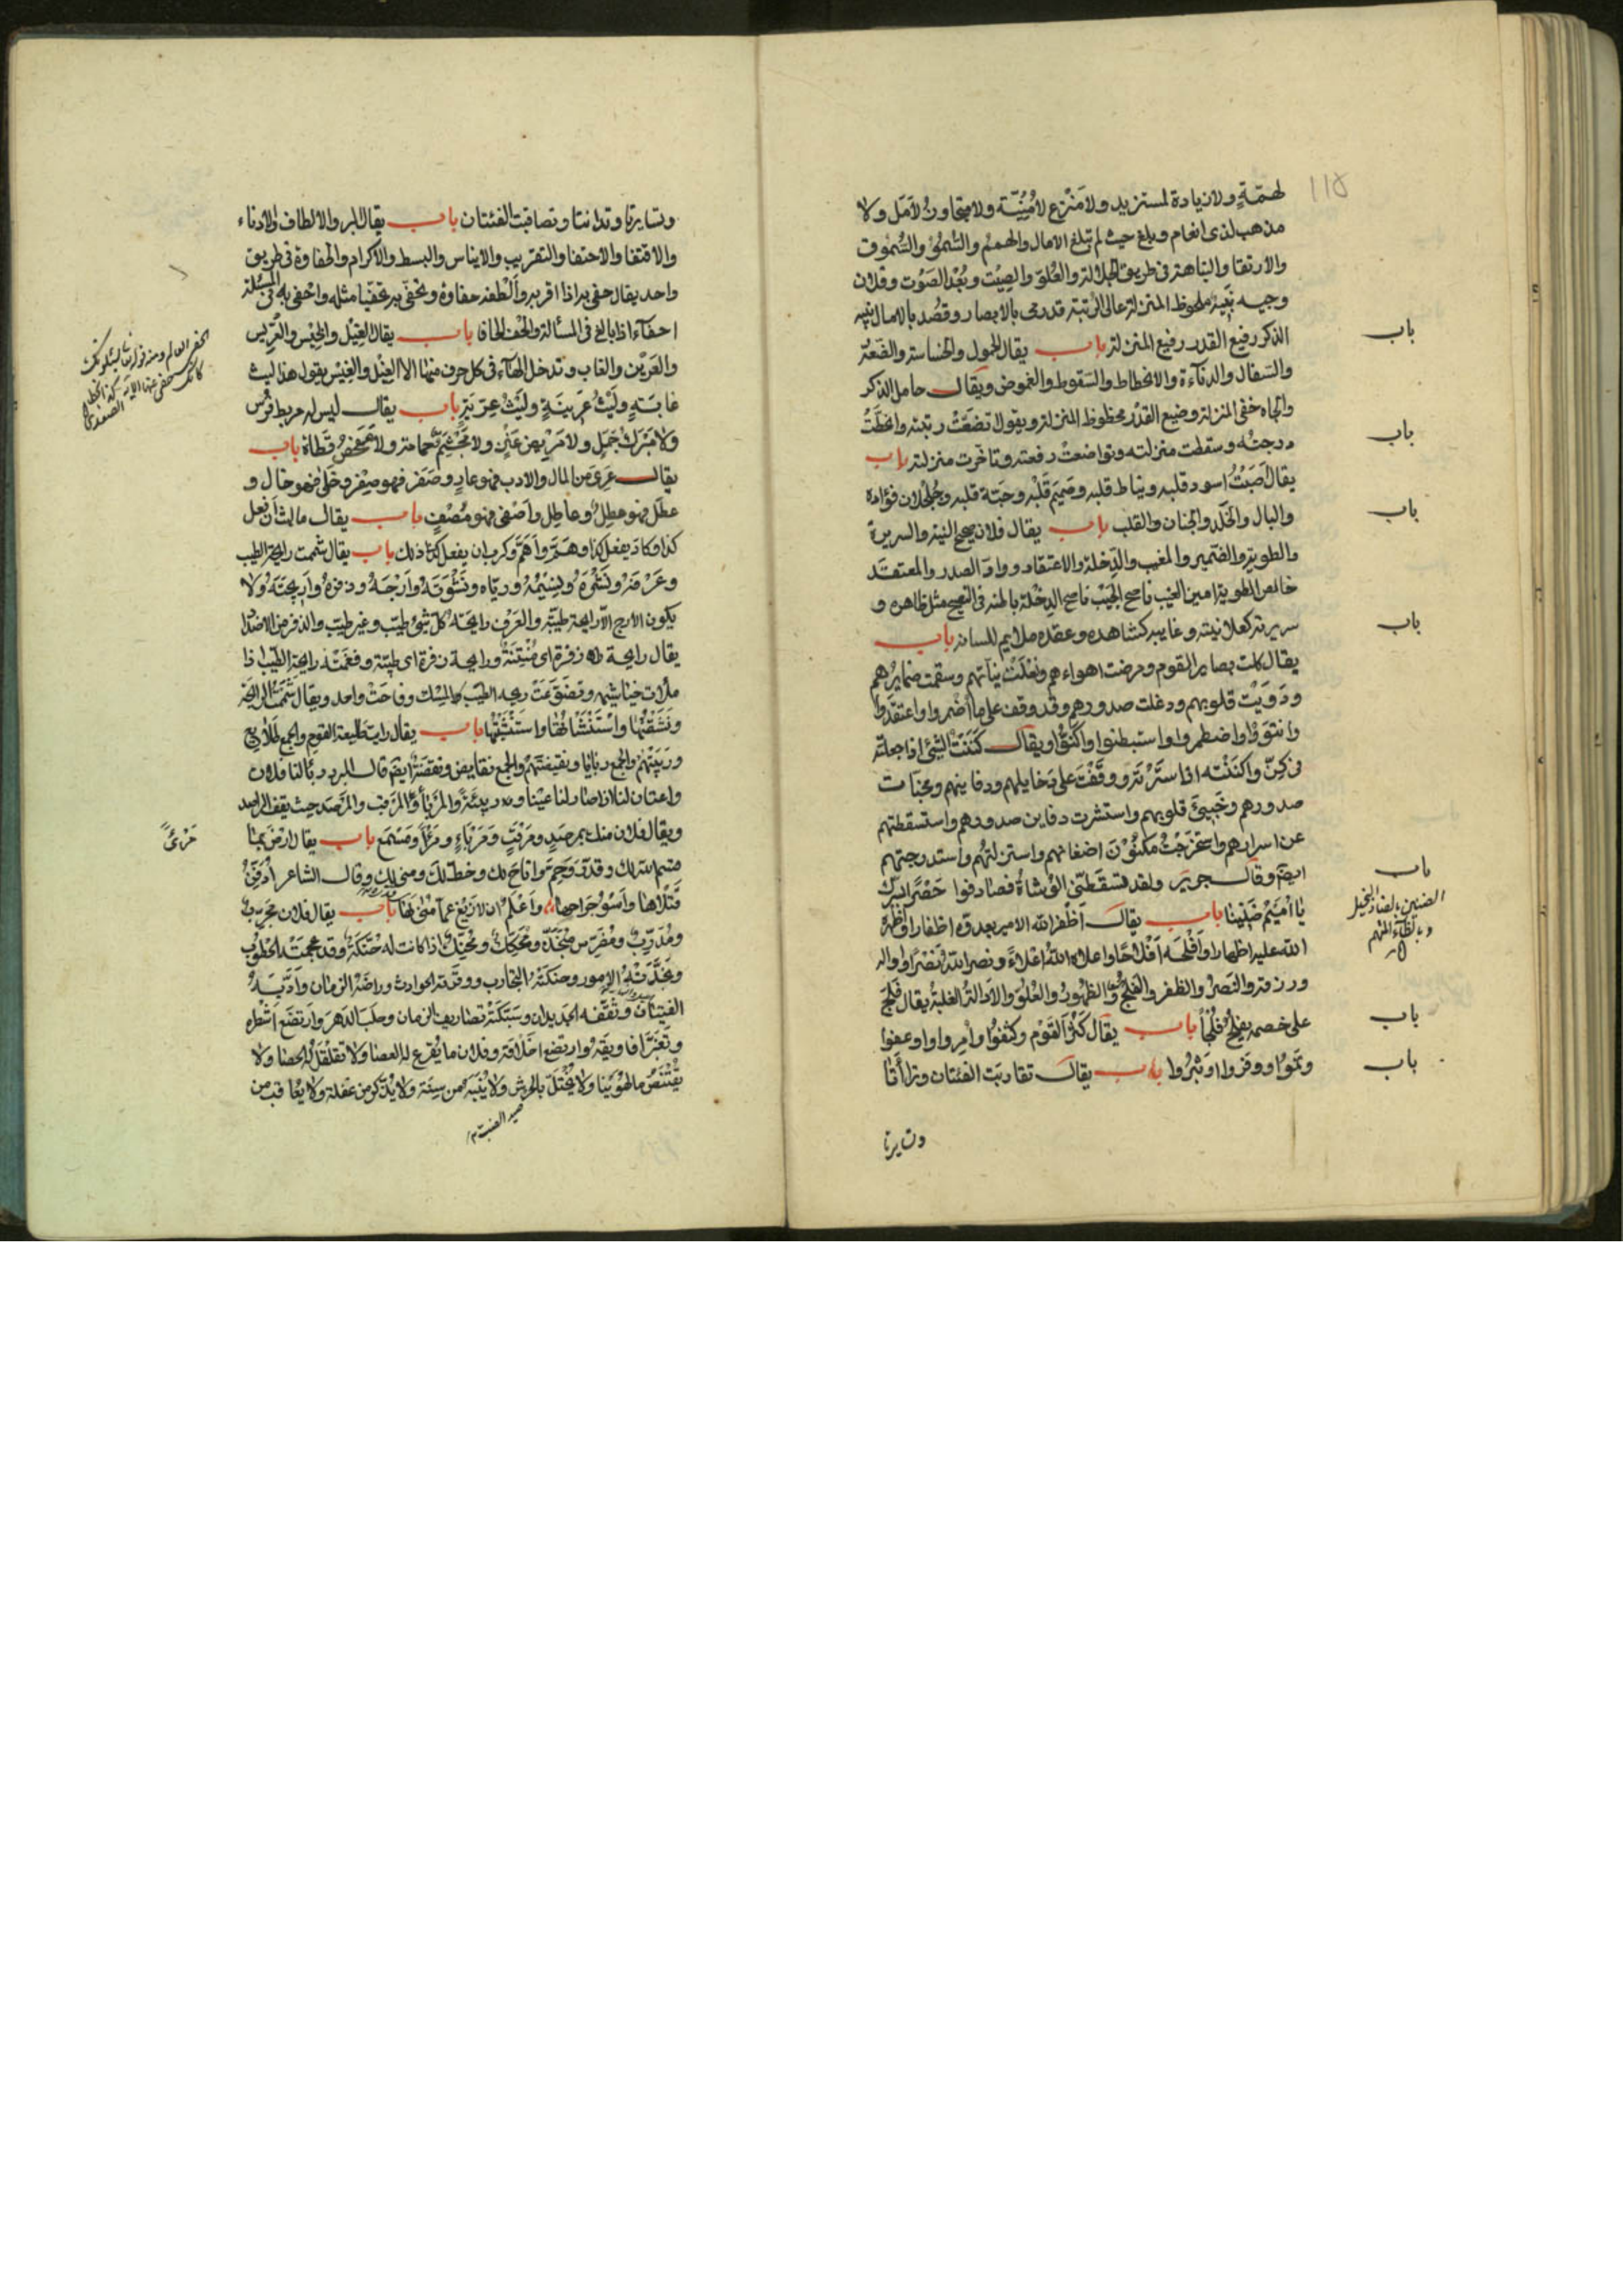 ١١٥
لهمّةٍ ولا زيادة لمستزيد ولا مَنْزع لأُمْنِيّة ولا متجاوزٌ لأمَل ولا
مذهب لذى انعام وبلغ حيث لم تبلغ الامال والهمم والسُّموّ والسُّموق
والارتقا والنباهة فى طريق الجلالة والعُلوّ والصِيْت وبُعْد الصَوْت وفلان
وجيه نَبِيْهٌ ملحوظ المنزلة عالى الرُتبة قد رمى بالابصار وقُصد بالامال نبيه
الذكر رفيع القدر رفيع المنزلة باب يقال الخمول والخساسة والضَعَةُ
والسَفال والدنآءة والانحطاط والسَقوط والغموض ويقال خامل الذكر
والجاه خفى المنزلة وضيع القَدْر محطوط المنزلة ويقول تضعّت رتبته وانحطَّتْ
درجتُه وسقطت منزلته وتواضعتْ رفعته وتاخرت منزلته باب
يقال اسود قلبه ونياط قلبه وصَميم قَلْبه وحَبّة قلبه وجُلْجُلان فؤاده
والبال والخَلَد والجَنان والقلب باب يقال فلان صحيح النية والسريرة
والطوية والضمير والمغيب والدِخلة والاعتقاد ووادّ الصدر والمعتقد
خالص الطوية امين الغيب ناصح الجَيْب ناصح الدِخْلة باطنه فى النصح مثل ظاهره و
سريرته كعلانيته وغايبه كشاهده وعقده ملايم للسانه باب
يقال كلت بصاير القوم ومرضت اهواءهم ونَغِلَتْ نياتهم وسقمت ضمايرُهم
ودَوِيَتْ قلوبهم ودغلت صدورهم وقد وقف على ما اضمروا واعتقدوا
وانتووْا واضطمروا واستبطنوا واكنّوْا ويقال كَنَنْتُ الشئ اذا جعلته
فى كِنّ واكنَنْته اذا سترْته ووقَفْتَ على دَخايلهم ودفاينهم ومخبّآت
صدورهم وخَبِىّ قلوبهم واستثرت دفاين صدورهم واستسقطتهم
عن اسرارهم واستخرجْتُ مكنُوْنَ اضغانهم واستنزلتهُم واستدرجتهم
ايضًا وقال جرير ولقد تسقَّطَنى الوُشاةُ فصادفوا حَصِرًا بسِرّك
يا أُمَيْمُ ضَنِيْنا باب يقال أظْفر الله الامير بعدوّه اظفارا وأظْهره
الله عليه اظهارا وأَفْلَحَه اَفْلاحًا واعلاه اللهُ اعْلاءً ونصره اللهُ نَصْرًا واداله
ورزقه النَصْرَ والظفر والفَلْجَ والظهُوْرَ والعُلُوّ والادالة الغلبة يقال فَلَجَ
على خصمه يفلِجُ فُلْجًا باب يقال كَثُرَ القوم وكثفُوا وأمِروا وعفوا
ونموْا ووفروا وثَرُوا باب يقال تقاربت الفئتان وتراأتا
وتايرتا
باب
باب
باب
باب
باب
الضنين بالضاد البخيل
وبالظاء المتهم
باب
باب
وتسايرتا وتدانتا وتصاقبت الفئتان باب يقال البر والالطاف والادناء
والاقتفا والاحتفا والتقريب والايناس والبسط والاكرام والحفاوة فى طريق
واحد يقال حفى به اذا اقربه وألْطفه حفاوة وتحفّى به تحفّيا مثله واحفى به فى المسئلة
احفآء اذا بالغ فى المسألة والحف الحافا باب يقال الغِيْل والخِيْس والعِرِّيس
والعَرِيْن والغاب وتدخل الهآء فى كل حرف منها الا الغِيْل والخِيْس يقول هذا ليث
غابَةٍ وليْثُ عَرِينَةٍ ولَيْثُ عِرّيسَةٍ باب يقال ليس له مربط فرس
ولا مَبْرَكُ جَمَلٍ ولا مَرْبِض عَنْزٍ ولا مَجْثَم حمامة ولا مَفحَصُ قَطاة باب
يقال عَرِىَ من المال والادب فهو عارٍ وصَفِر فهو صِفْر وخَلَى فهو خالٍ و
عَطل فهو عطِلٌ وعاطِل واَصْفى فهو مُصْفٍ باب يقال مالبث أن فعل
كذا وكاد يفعل كذا وهَمَّ واَهَمَّ وكرب ان يفعل كلّ ذلك باب يقال شممت رايحة الطيب
وعَرْفَه ونَسِيْمُه ورَيّاه ونَشْوَتَه واَرَجَهُ وذَفَره واَرِيجَتَه ولا
يكون الأرج الّا رايحة طيّبة والعَرْف رايحة كل شئ طيّب وغير طيب والذفر من الاضداد
يقال رايحة ذفرة اى مُنْتِنَة ورايحة ذفرة اى طيّبة وفغَمَتْه رايحة الطيب اذا
ملأت خياشيمه وتضوَّعَتْ ريحه الطيب كالمِسْك وفاحَتْ واحد ويقال شَمَمْتُ الرايحة
ونَشَقْتُها واسْتَنْشَاْتُها واستَنْشَقْتُها باب يقال رايت طَليعة القوم والجمع طَلايع
ورَبِيْئَتهم والجمع ربَايا ونفيضتهم والجمع نفايض ونفضَة ايضًا قال المبرد ربأ لنا فلان
واعتان لنا اذا صار لنا عينًا وربيئَةً والمَرْبأ والمَرْقب والمَرْصَد حيث يقف الراصد
ويقال فلان منك بمرصَدٍ ومَرْقَبٍ ومَرْباءٍ ومَرْأً ومَسْمَع باب يقال ارْضَ بما
قسم الله لك وقدّر وحَمَّ واتاحَ لك وخطّ لك ومنى لك وقال الشاعر
وَاَعْلَمُ ان لا زَيْغَ عمّا مُنِى لَها باب يقال فلان مجرّبٌ
ومُدَرّبٌ ومُضَرّس ومُنجَّذ ومُحَكّك ومُحنَّك اذا كانت له حُنْكَةٌ وقد عجمَتْه الخطُوْب
ونجّذتْهُ الامور وحنكَتْهُ التجارب ووقّذته الحوادث وراضَه الزمان وأدَّبَهُ
الفتيَان وثَقّفه الجديدان وسَبَكَتْه تصاريف الزمان وحلَبَ الدهرَ وارتضَع اَشْطُره
وفلان ما يُقرع له العصا ولا تقلْقَلُ له الحصَا ولا
يُقْتَنَصُ بالهُوَيْنا ولا يُخْتَلُ بالحَرْش ولا يُنَبَّهُ من سِنَة ولا يُذكّر من غفلة ولا يعاقب من
صيد الضب
الحفى العالم ومنه قوله تعالى يسئلونك
كانك حفى عنها الاية
مَرْئىً